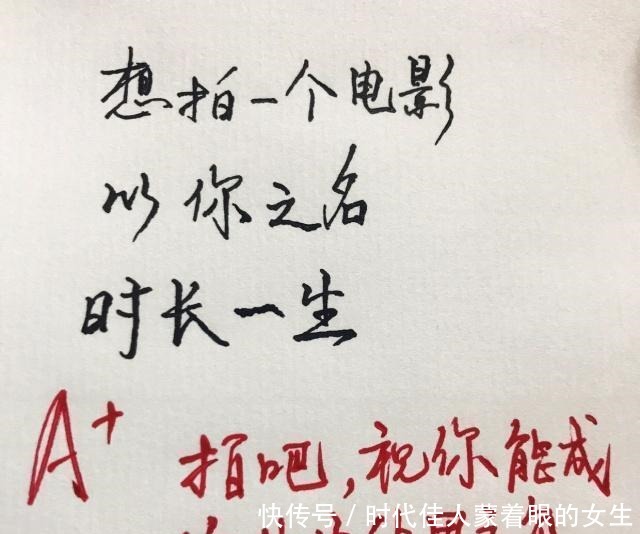 想拍一个电影
以你之名
时长一生
A+
拍吧,祝你能成
快传号 / 时代佳人蒙着眼的女生